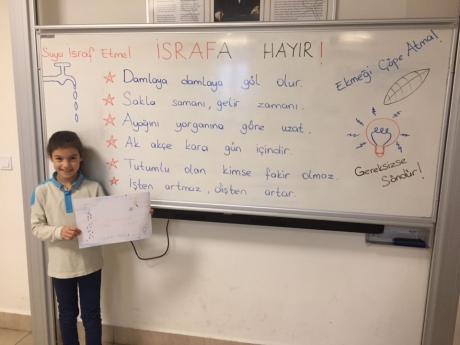 Suyu İsraf Etme!
İSRAFA HAYIR!
Damlaya damlaya göl olur.
Sakla samanı, gelir zamanı.
Ayağını yorganına göre uzat.
Ak akçe kara gün içindir.
Tutumlu olan kimse fakir olmaz.
İşten artmaz, dişten artar.
Ekmeği Çöpe Atma!
Gereksizse
Söndür!